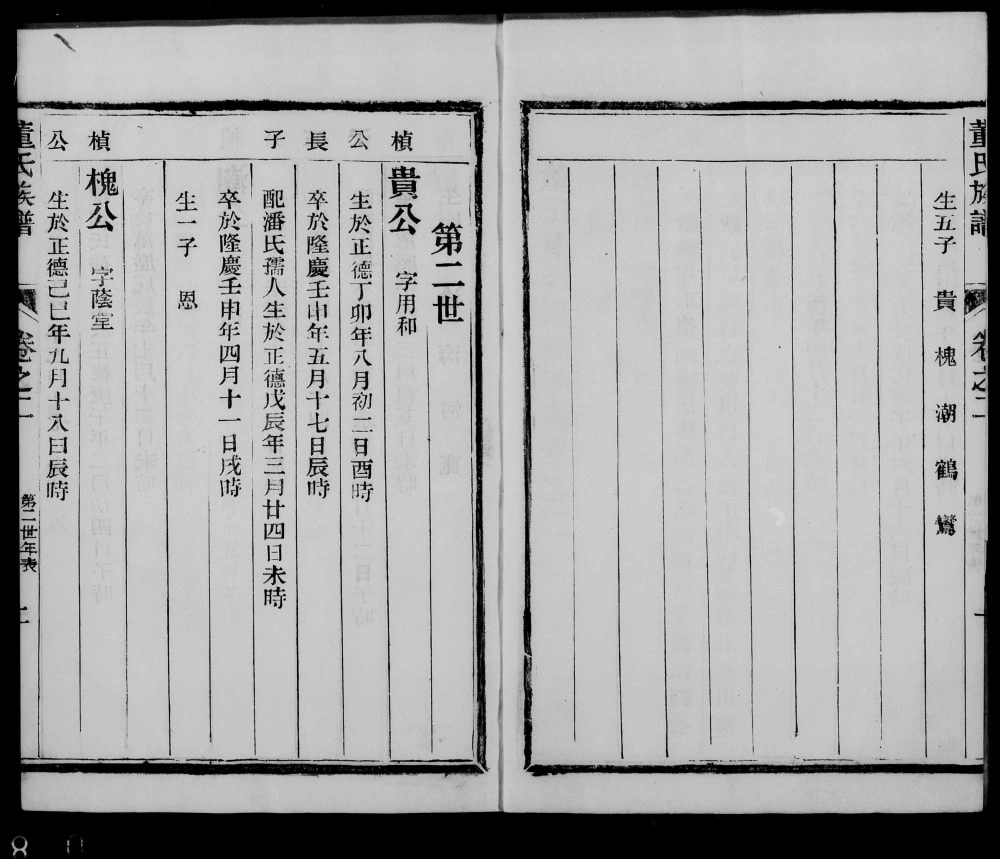 董氏族譜
卷之二
生五子 貴 槐 潮 鶴 鸞
第二世
楨公長子
貴公 字用和
生於正德丁卯年八月初二日酉時
卒於隆慶壬申年五月十七日辰時
配潘氏孺人生於正德戊辰年三月廿四日未時
卒於隆慶壬申年四月十一日戌時
生一子 恩
楨公
槐公 字蔭堂
生於正德己巳年九月十八日辰時
董氏族譜
卷之二
第二世年表